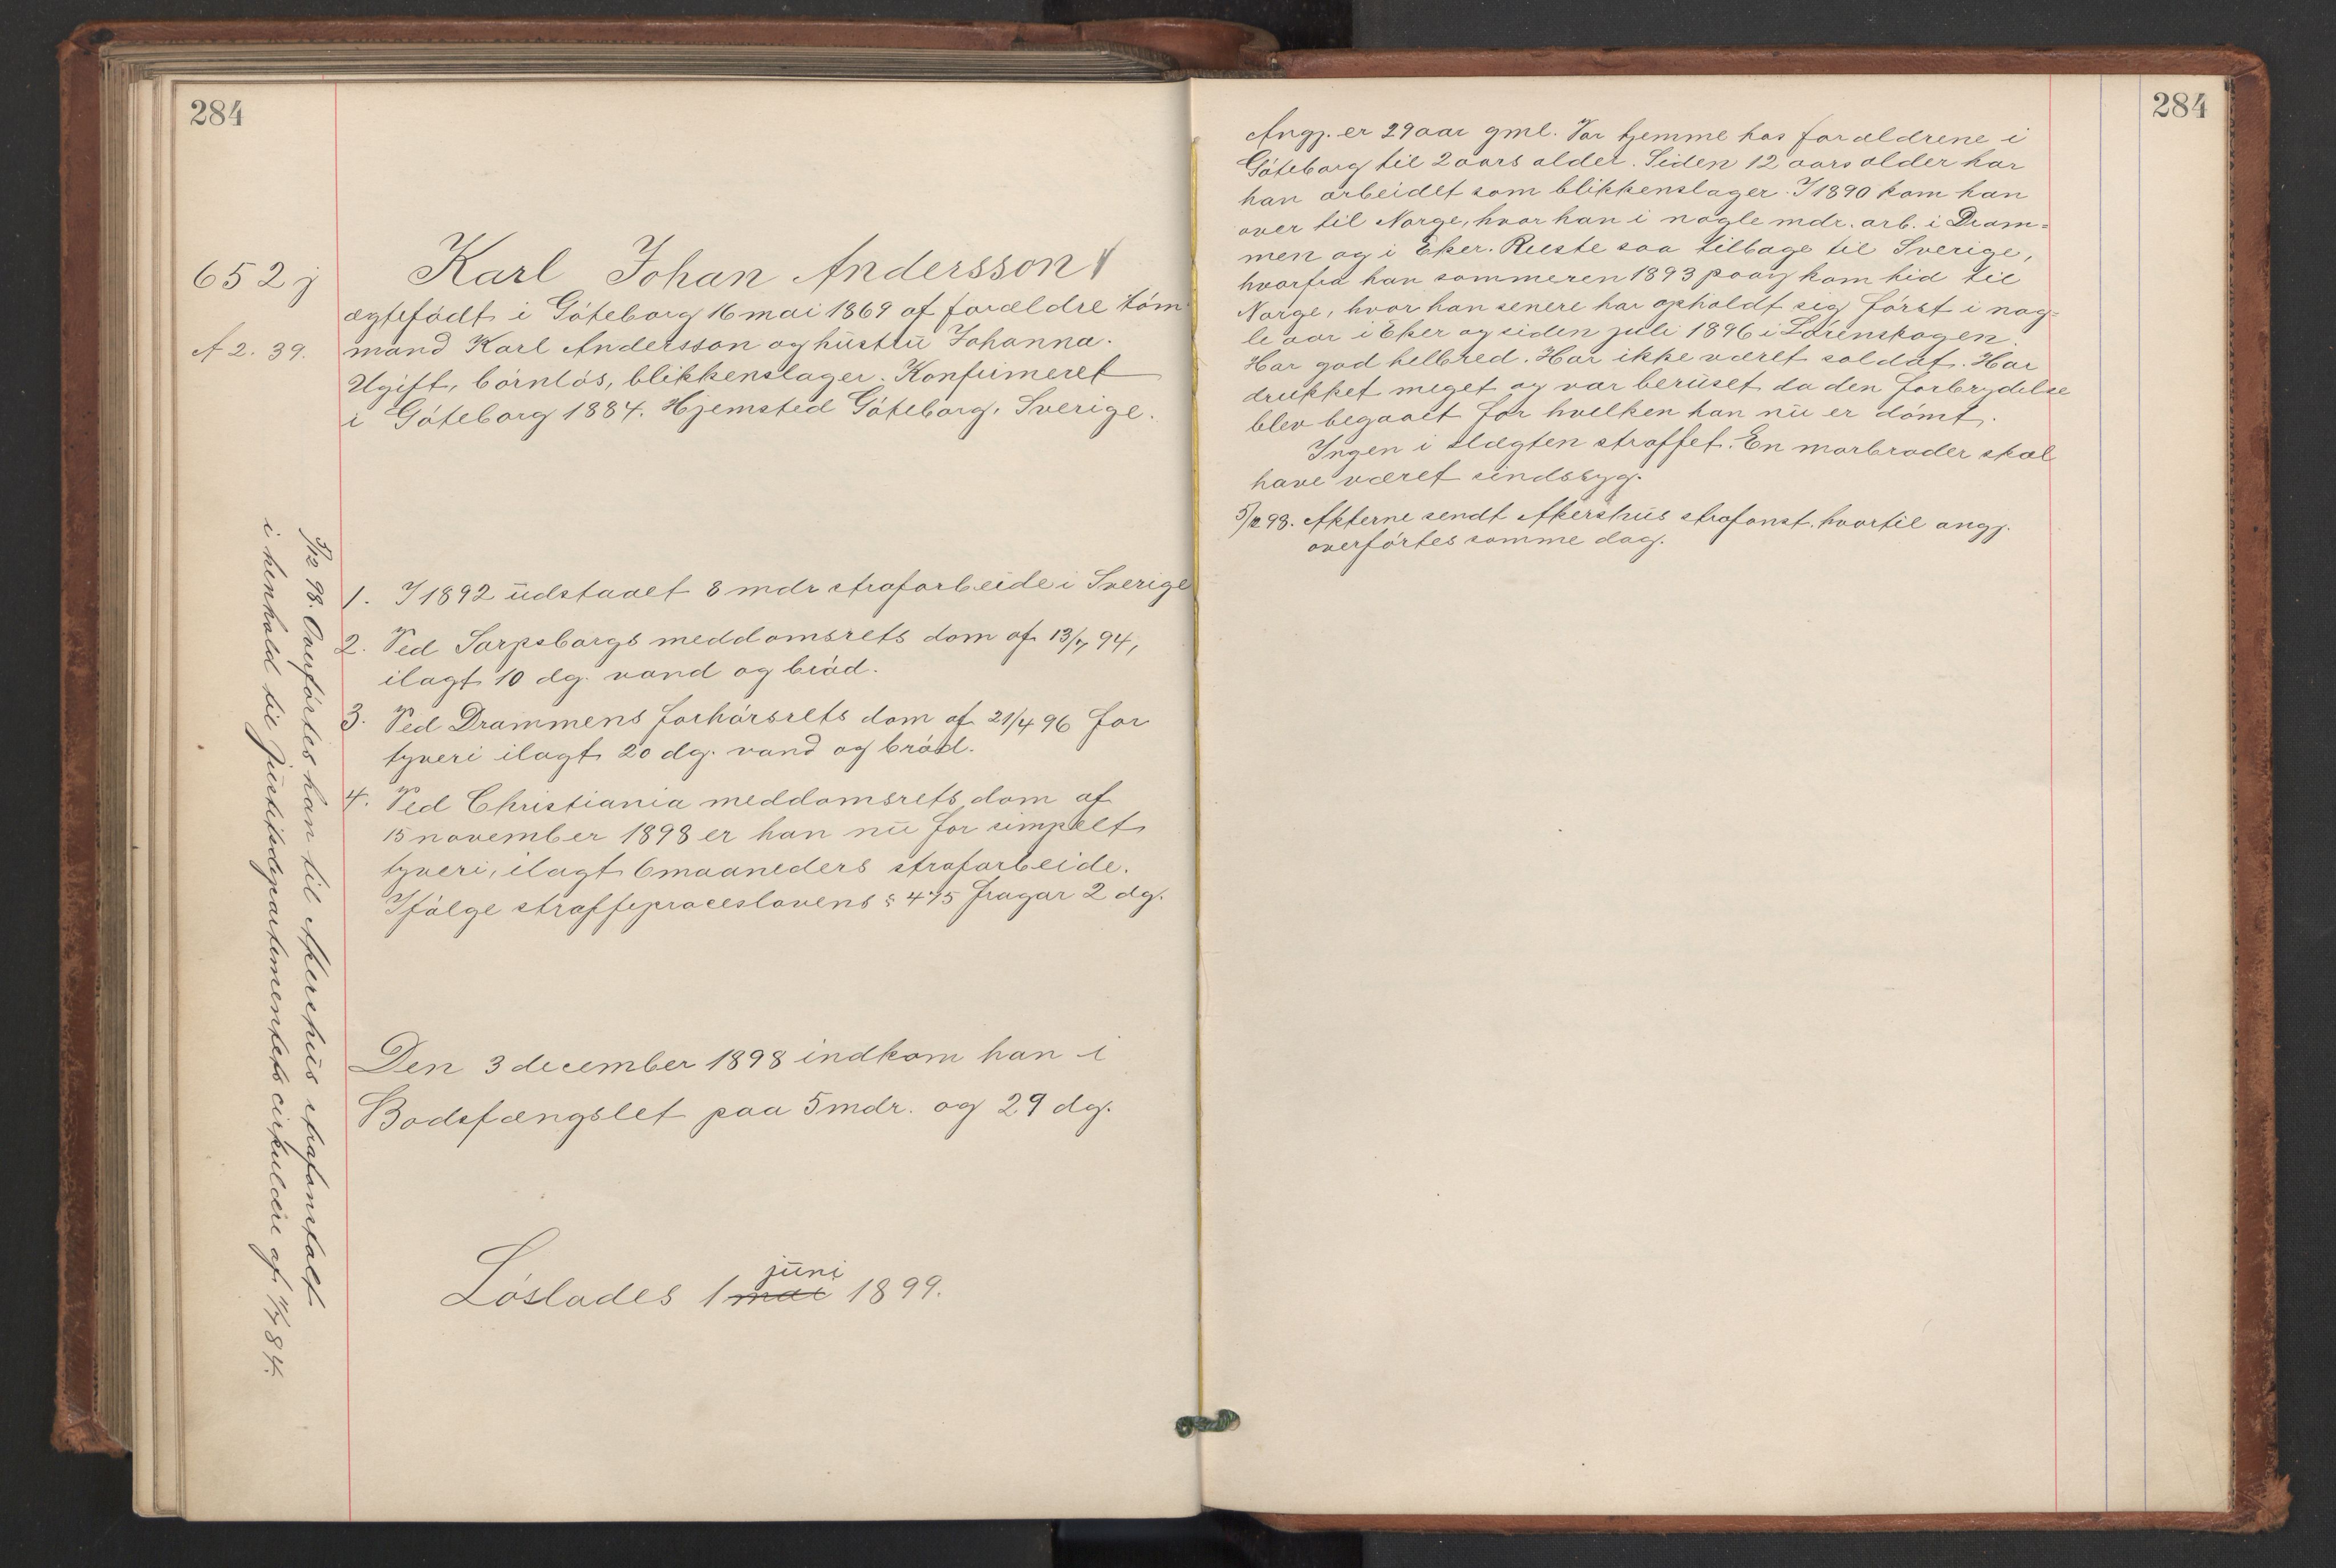 284
652 j
A 2. 39.
Karl Johan Andersson
ægtefødt i Göteborg 16 mai 1869 af forældre tøm
mand Karl Andersson og hustru Johanna.
Ugift, børnløs, blikkenslager. Konfirmeret
i Göteborg 1884. Hjemsted Göteborg, Sverige.
1. I 1892 udstaaet 8 mdr strafarbeide i Sverige
2. Ved Sarpsborgs meddomsrets dom af 13/7 94,
ilagt 10 dg. vand og brød.
3. Ved Drammens forhørsrets dom af 21/4 96 for
tyveri ilagt 20 dg. vand og brød.
4. Ved Christiania meddomsrets dom af
15 november 1898 er han nu for simpelt
tyveri, ilagt 6 maaneders strafarbeide.
Ifølge straffeproceslovens § 475 fragar 2 dg.
Den 3 december 1898 indkom han i
Bodsfængslet paa 5 mdr. og 29 dg.
juni
Løslades 1 mai 1899.
5/12 98. Overførtes han til Akershus strafanstalt
i henhold til Justitsdepartementets cirkulære af 84.
284
Angj. er 29 aar gml. Var hjemme hos forældrene i
Göteborg til 2 aars alder. Siden 12 aars alder har
han arbeidet som blikkenslager. I 1890 kom han
over til Norge, hvor han i nogle mdr. arb. i Dram-
men og i Eker. Reiste saa tilbage til Sverige,
hvorfra han sommeren 1893 paany kom hid til
Norge, hvor han senere har opholdt sig først i nog-
le aar i Eker og siden juli 1896 i Lørenskogen.
Har god helbred. Har ikke været soldat. Har
drukket meget og var beruset da den forbrydelse
blev begaaet for hvilken han nu er dømt.
Ingen i slægten straffet. En morbroder skal
have været sindssyg.
5/12 98. Akterne sendt Akershus strafanst. hvortil angj.
overførtes samme dag.